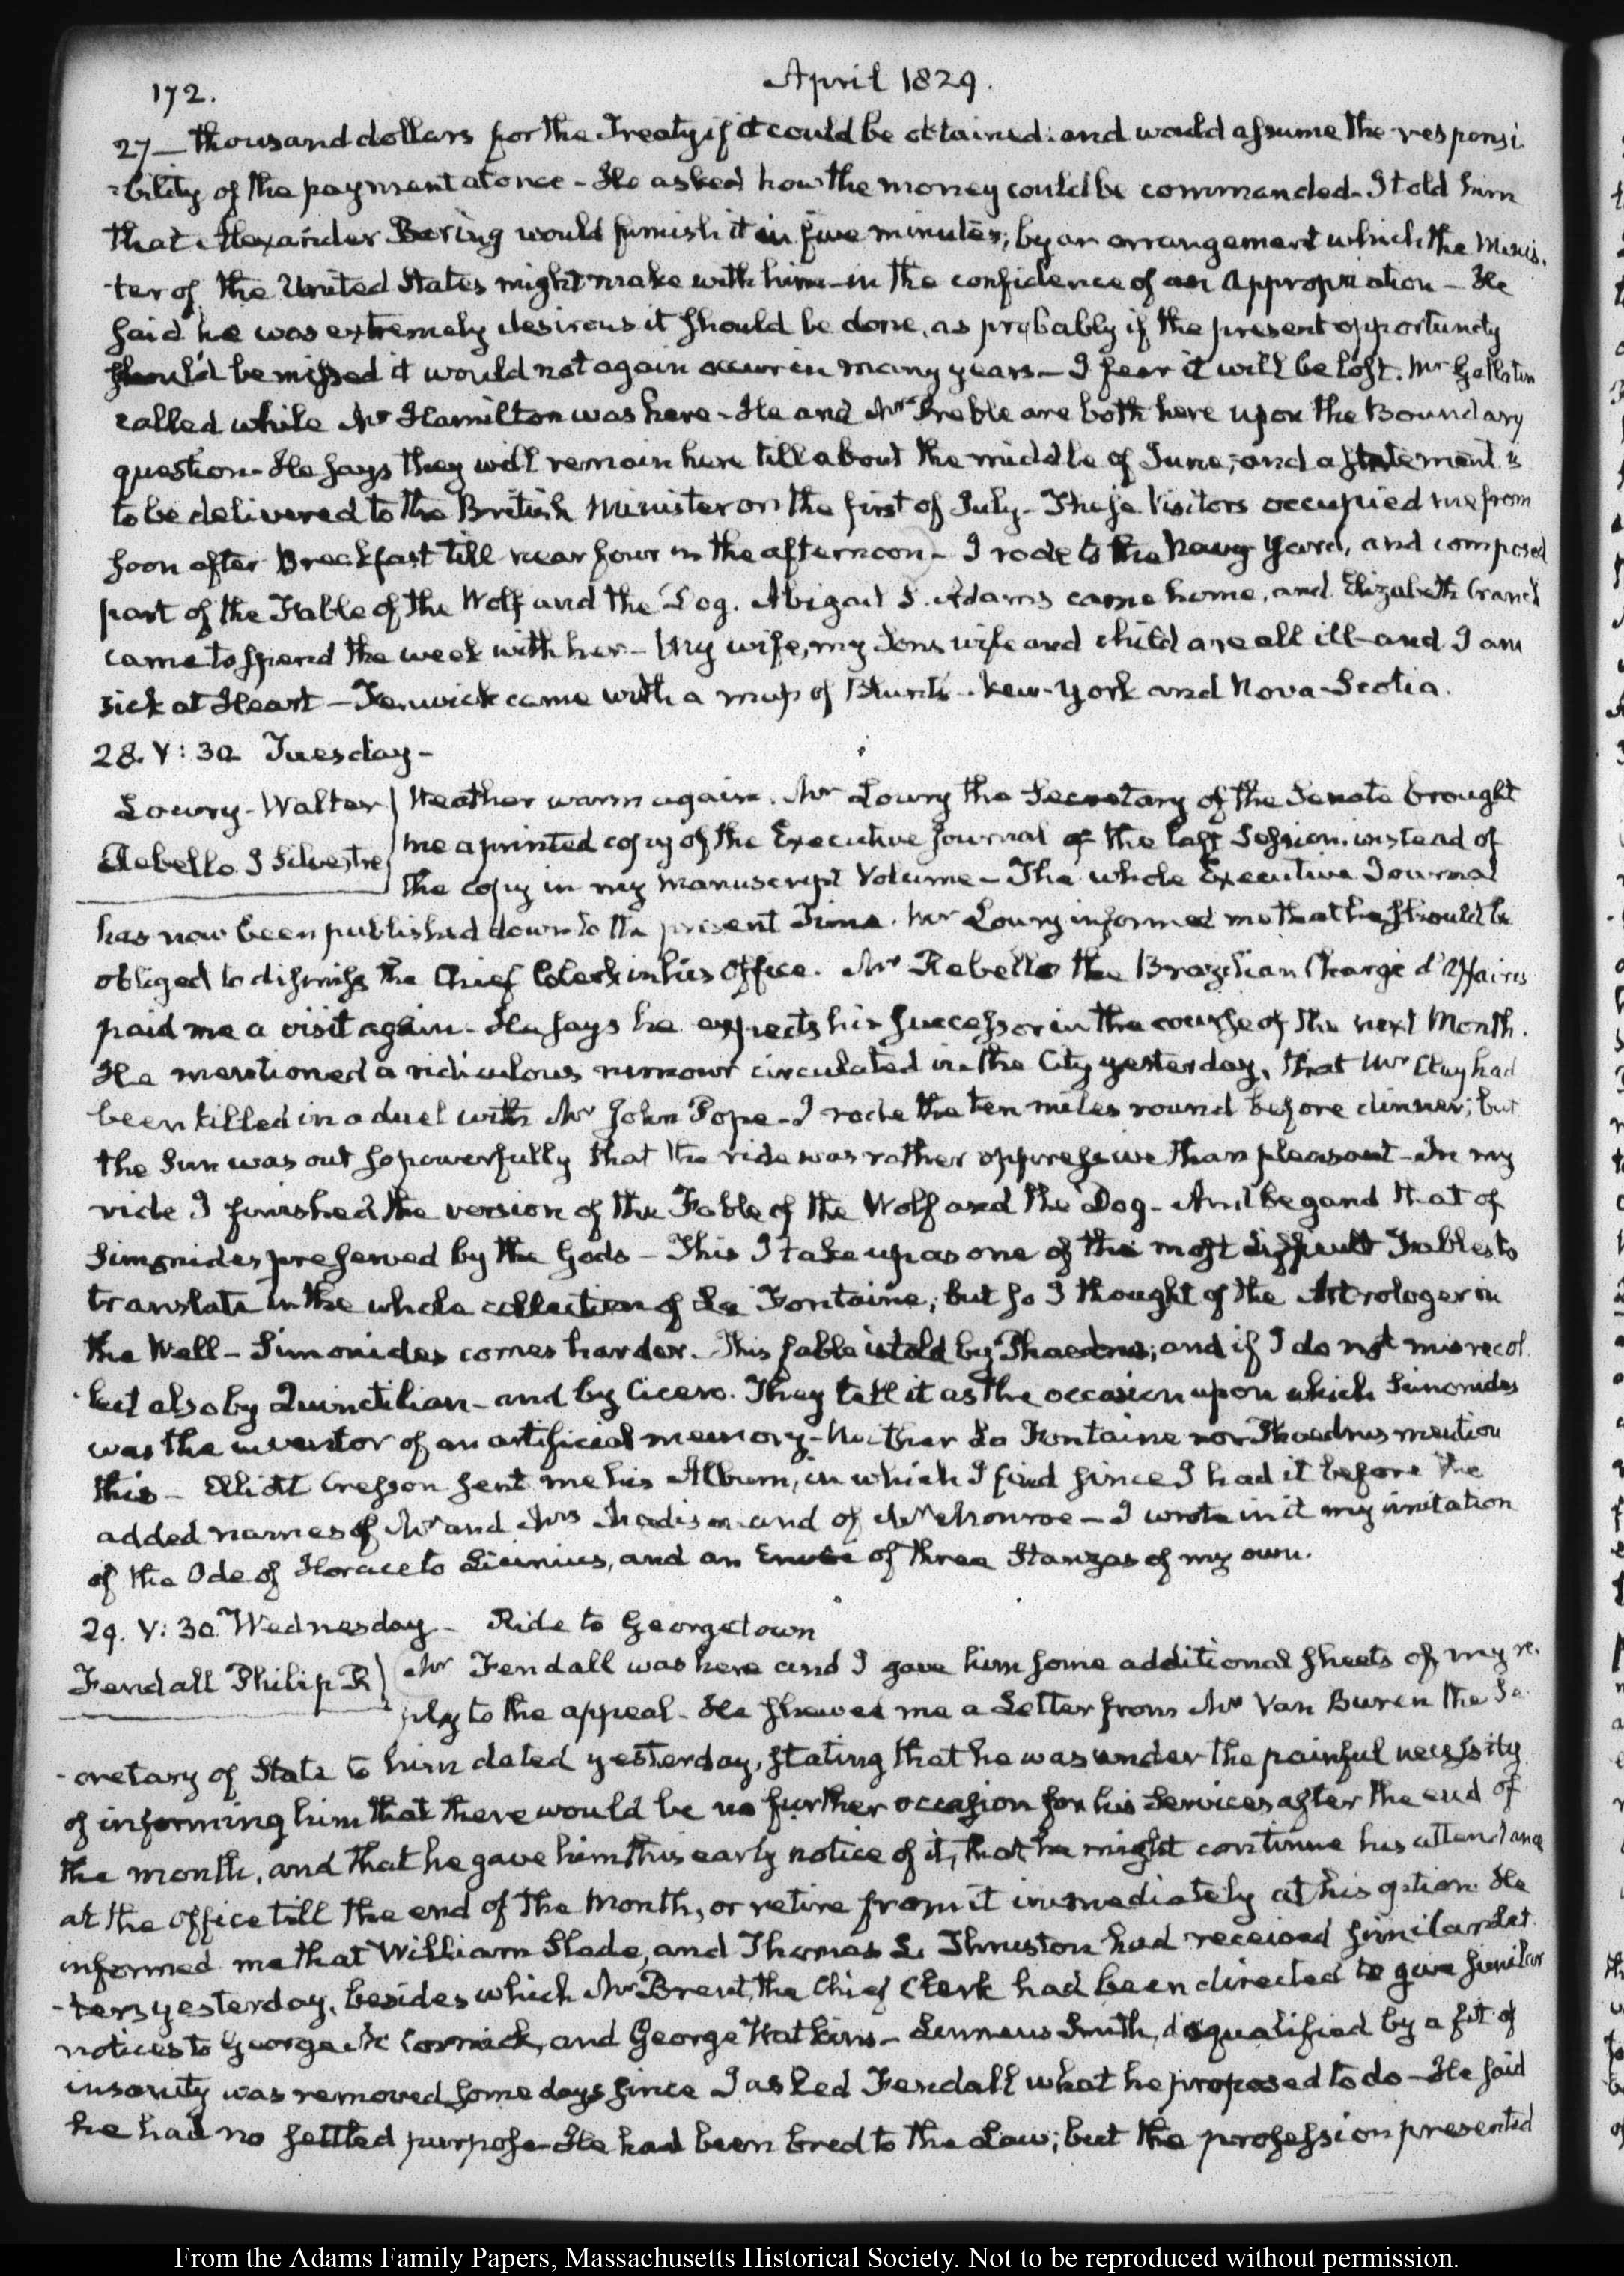 172.
April 1829.
27— thousand dollars for the Treaty if it could be obtained: and would assume the responsi
-bility of the payment at once - He asked how the money could be commanded - I told him
that Alexander Baring would furnish it in five minutes; by an arrangement which the Minis-
-ter of the United States might make with him - in the confidence of an appropriation - He
said he was extremely desirous it should be done, as probably if the present opportunity
should be missed it would not again occur in many years - I fear it will be lost. Mr Gallatin
called while Mr Hamilton was here - He and Mr Preble are both here upon the Boundary
question - He says they will remain here till about the middle of June; and a statement is
to be delivered to the British Minister on the first of July - These Visitors occupied me from
soon after Breakfast till near four in the afternoon - I rode to the Navy Yard, and composed
part of the Fable of the Wolf and the Dog. Abigail S. Adams came home, and Elizabeth Cranch
came to spend the week with her - My wife, my Sons wife and child are all ill - and I am
sick at Heart - Fenwick came with a map of Blunt's - New-York and Nova-Scotia.
28. V: 30 Tuesday -
Lowry - Walter
Rebello J Silvestre
Weather warm again. Mr Lowry the Secretary of the Senate brought
me a printed copy of the Executive Journal of the last Session. instead of
the copy in my Manuscript Volume - The whole Executive Journal
has now been published down to the present Time. Mr Lowry informed me that he should be
obliged to dismiss the Chief Clerk in his Office. Mr Rebello the Brazilian Chargé d'Affaires
paid me a visit again - He says he expects his successor in the course of the next Month.
He mentioned a ridiculous rumour circulated in the City yesterday, that Mr Clay had
been killed in a duel with Mr John Pope - I rode the ten miles round before dinner; but
the Sun was out so powerfully that the ride was rather oppressive than pleasant - In my
ride I finished the version of the Fable of the Wolf and the Dog - And began that of
Simonides preserved by the Gods - This I take up as one of the most difficult Fables to
translate in the whole collection of La Fontaine; but so I thought of the Astrologer in
the Well - Simonides comes harder. This fable is told by Phaedrus; and if I do not misrecol
-lect also by Quinctilian - and by Cicero. They tell it as the occasion upon which Simonides
was the inventor of an artificial memory - Neither La Fontaine nor Phaedrus mention
this - Elliott Cresson sent me his Album, in which I find since I had it before the
added names of Mr and Mrs Madison and of Mr Monroe - I wrote in it my imitation
of the Ode of Horace to Licinius, and an Envoi of three Stanzas of my own.
29. V: 30 Wednesday - Ride to Georgetown
Fendall Philip R
Mr Fendall was here and I gave him some additional sheets of my re-
ply to the appeal - He shewed me a Letter from Mr Van Buren the Se
-cretary of State to him dated yesterday, stating that he was under the painful necessity
of informing him that there would be no further occasion for his Services after the end of
the month, and that he gave him this early notice of it, that he might continue his attendance
at the Office till the end of the Month, or retire from it immediately at his option. He
informed me that William Slade, and Thomas L. Thruston had received similar Let
-ters yesterday, besides which Mr Brent, the Chief Clerk had been directed to give similar
notices to George McCormick, and George Watkins - Linneus Smith, disqualified by a fit of
insanity was removed some days since I asked Fendall what he proposed to do - He said
he had no settled purpose - He had been bred to the Law; but the profession presented
From the Adams Family Papers, Massachusetts Historical Society. Not to be reproduced without permission.